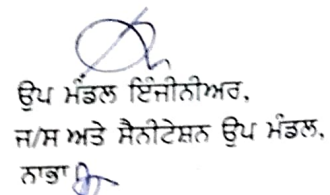 ਉਪ ਮੰਡਲ ਇੰਜੀਨੀਅਰ,
ਜ/ਸ ਅਤੇ ਸੈਨੀਟੇਸ਼ਨ ਉਪ ਮੰਡਲ,
ਨਾਭਾ